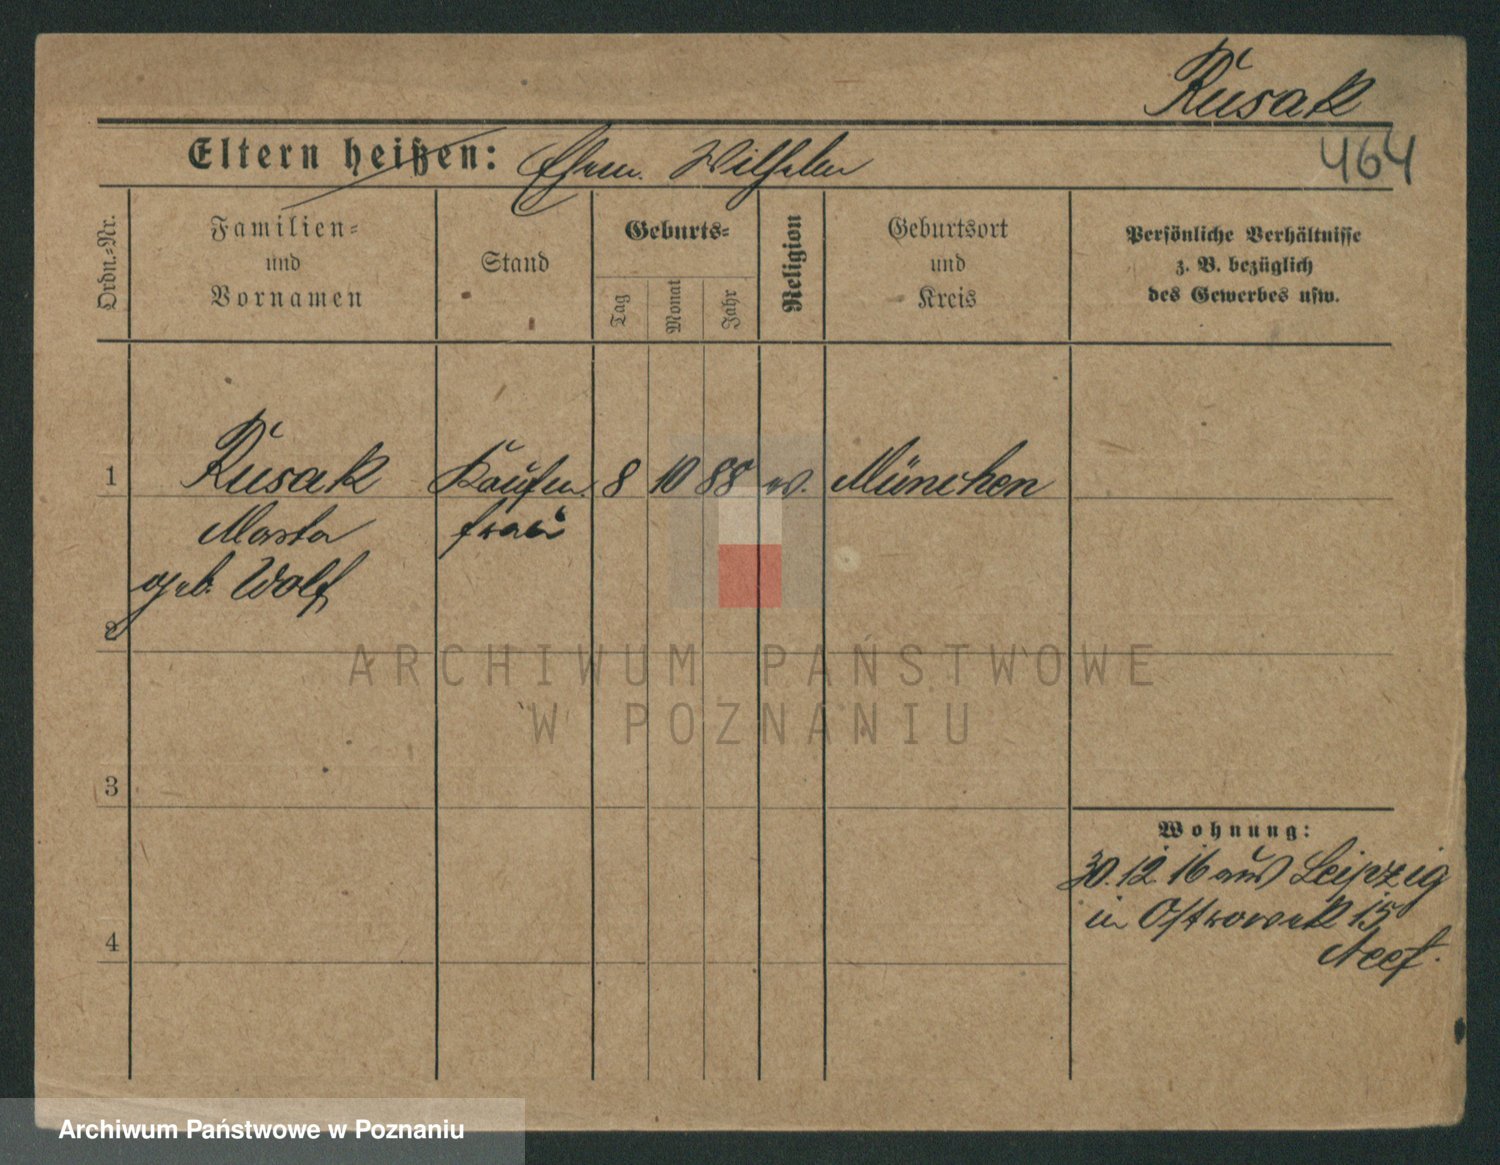 Rusak
464
Eltern heißen: Ehem. Wilhelm
Ordn.-Nr.
Familien-
und
Vornamen
Stand
Geburts-
Tag
Monat
Jahr
Religion
Geburtsort
und
Kreis
Persönliche Verhältnisse
z. B. bezüglich
des Gewerbes usw.
1 Rusak Kaufm. 8 10 88 München
Marta frau
geb. Wolf
2
3
4
Wohnung:
30.12.16 aus Leipzig
in Ostrowek 15
ARCHIWUM PAŃSTWOWE
W POZNANIU
Archiwum Państwowe w Poznaniu